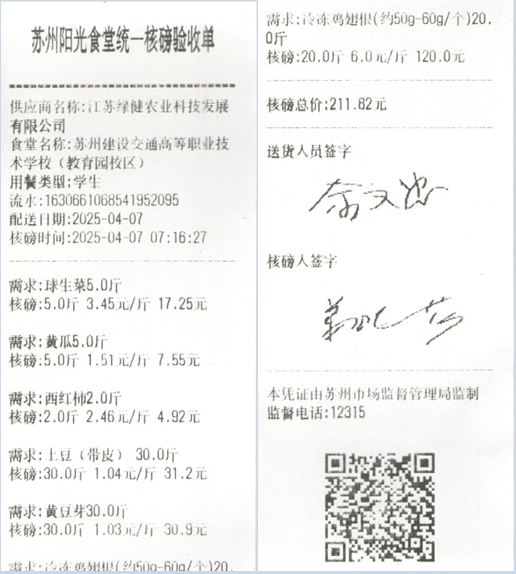 苏州阳光食堂统一核磅验收单
供应商名称:江苏绿健农业科技发展
有限公司
食堂名称:苏州建设交通高等职业技
术学校（教育园校区）
用餐类型:学生
流水:1630661068541952095
配送日期:2025-04-07
核磅时间:2025-04-07 07:16:27
需求:球生菜5.0斤
核磅:5.0斤 3.45元/斤 17.25元
需求:黄瓜5.0斤
核磅:5.0斤 1.51元/斤 7.55元
需求:西红柿2.0斤
核磅:2.0斤 2.46元/斤 4.92元
需求:土豆（带皮） 30.0斤
核磅:30.0斤 1.04元/斤 31.2元
需求:黄豆芽30.0斤
核磅:30.0斤 1.03元/斤 30.9元
需求:冷冻鸡翅根(约50g-60g/个)20.
需求:冷冻鸡翅根(约50g-60g/个)20.
0斤
核磅:20.0斤 6.0元/斤 120.0元
核磅总价:211.82元
送货人员签字
核磅人签字
本凭证由苏州市场监督管理局监制
监督电话:12315